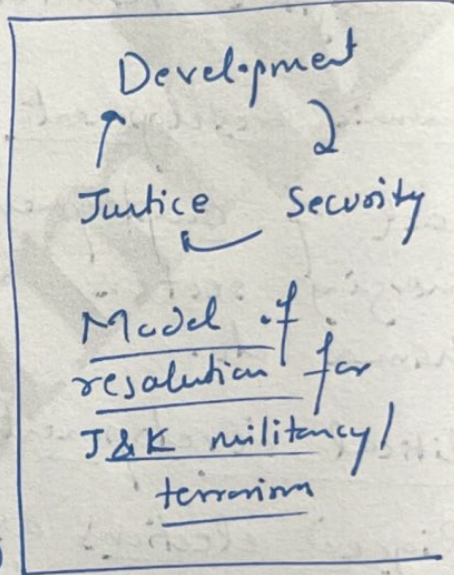 Development
Justice Security
Model of
resolution for
J&K militancy/
terrorism